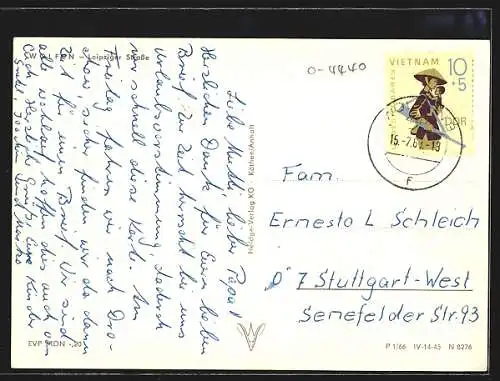 W FEN – Leipziger Straße
Liebe Mutti, lieber Papa!
Herzlichen Dank für Euren lieben
Brief. Zur Zeit herrscht bei uns
Urlaubsvorstimmung, dadurch
nur schnell diese Karte. Am
Freitag fahren wir nach Dres-
den, sicher finden wir da dann
Zeit für einen Brief. Wir sind
alle wohlauf, hoffen dies auch von
Euch. Herzliche Grüße, Eure Kinder
Joachim und
EVP MDN -,20
Heldge-Verlag KG Köthen/Anhalt
0-4440
VIETNAM
10
+5
DDR
15.-7.6
-18
F
Fam.
Ernesto L Schleich
D 7 Stuttgart-West
Senefelder Str. 93
P 1/66 IV-14-45 N 8276